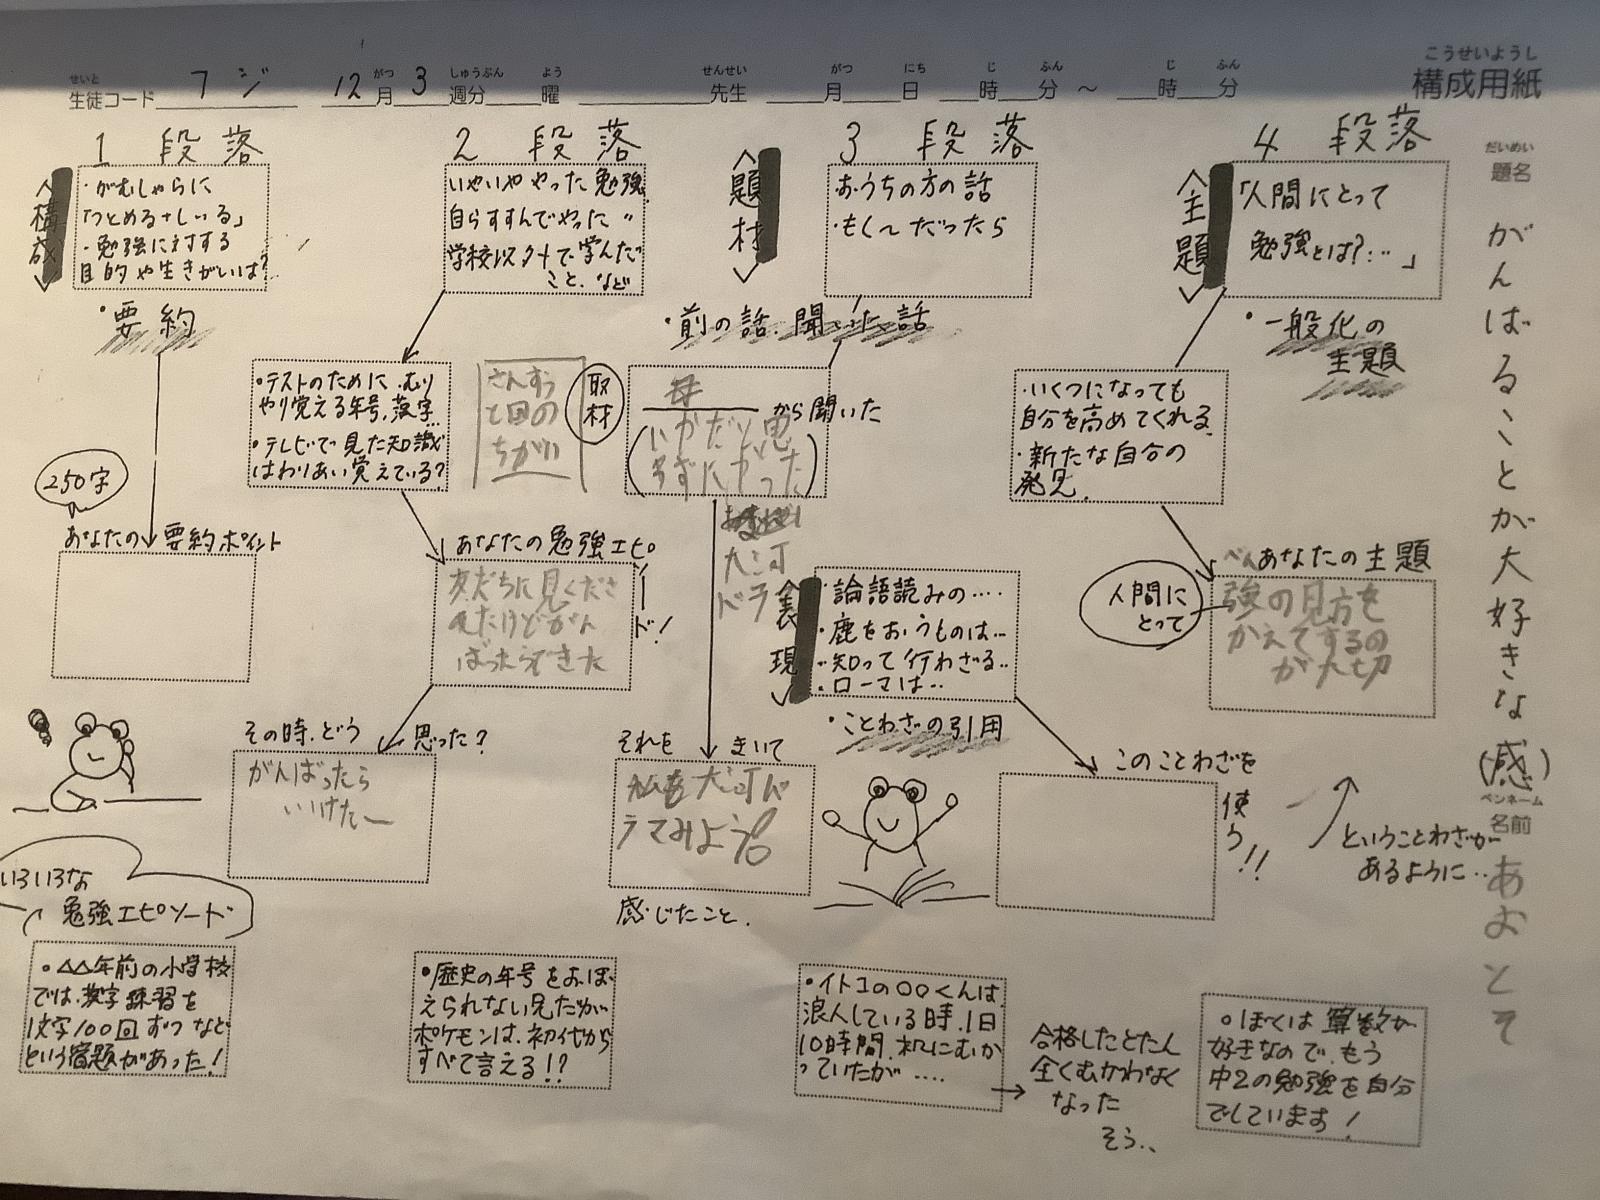 こうせいようし
構成用紙
せいと がつ しゅうぶん よう せんせい がつ にち じ ふん じ ふん
生徒コード フジ 12月 3 週分 曜 先生 月 日 時 分 ～ 時 分
だいめい
題名
がんばることが大好きな(感)
ペンネーム
名前
あおとそ
1 段落
<構成>
・がむしゃらに
「つとめる+しいる」
・勉強に対する
目的や生きがいは?
・要約
250字
あなたの要約ポイント
2 段落
いやいややった勉強
自らすすんでやった 〃
学校以外で学んだ
こと、など
・テストのために、むり
やり覚える年号、漢字…
・テレビで見た知識
はわりあい覚えている?
さんすう
と国の
ちがい
取材
あなたの勉強エピソード!
友だちに見くださ
れたけどがん
ばったらできた
その時、どう思った?
がんばったら
いけたー
<題材>
3 段落
おうちの方の話
・もし〜だったら
・前の話、聞いた話
母
から聞いた
大河
ドラ
それをきいて
私も大河ド
ラマみよう
感じたこと、
<表現>
・論語読みの‥‥
・鹿をおうものは…
・知って行わざる‥
・ローマは‥
・ことわざの引用
このことわざを
使う!!
ということわざが
あるように‥
<主題>
4 段落
「人間にとって
勉強とは?…」
・一般化の
主題
・いくつになっても
自分を高めてくれる
・新たな自分の
発見、
あなたの主題
人間に
とって
べん
強の見方を
かえてするの
が大切
いろいろな
勉強エピソード
・△△年前の小学校
では、漢字練習を
1文字100回ずつなど
という宿題があった!
・歴史の年号をおぼ
えられない兄だが、
ポケモンは、初代から
すべて言える!?
・イトコの〇〇くんは、
浪人している時、1日
10時間、机にむか
っていたが‥‥
合格したとたん
全くむかわなく
なった
そう、、
・ぼくは算数が
好きなので、もう
中2の勉強を自分
でしています!